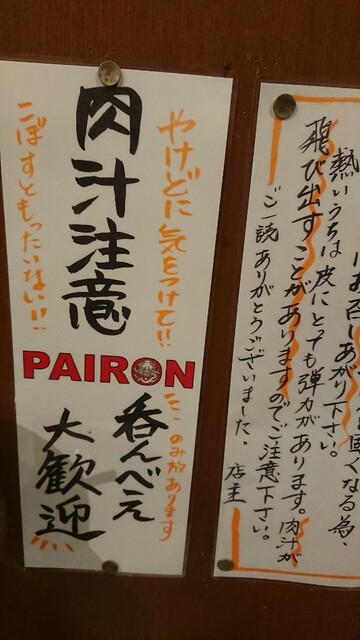 やけどに気をつけて!!
肉汁注意
こぼすともったいない!!
PAIRON
のみ放あります
呑んべえ
大歓迎
お召しあがり下さい。
固くなる為、
熱いうちは皮にとっても弾力があります。肉汁が
飛び出すことがありますのでご注意下さい。
ご一読ありがとうございました。
店主